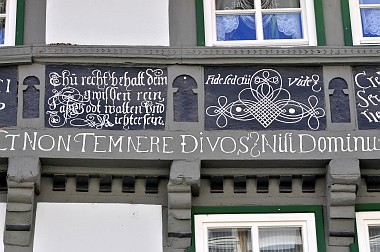 Thu recht behalt dein
gwissen rein,
Laß Godt walten und
Richter sein.
Fide sed cui Vide
CT NON TEMNERE DIVOS Nisi Dominu